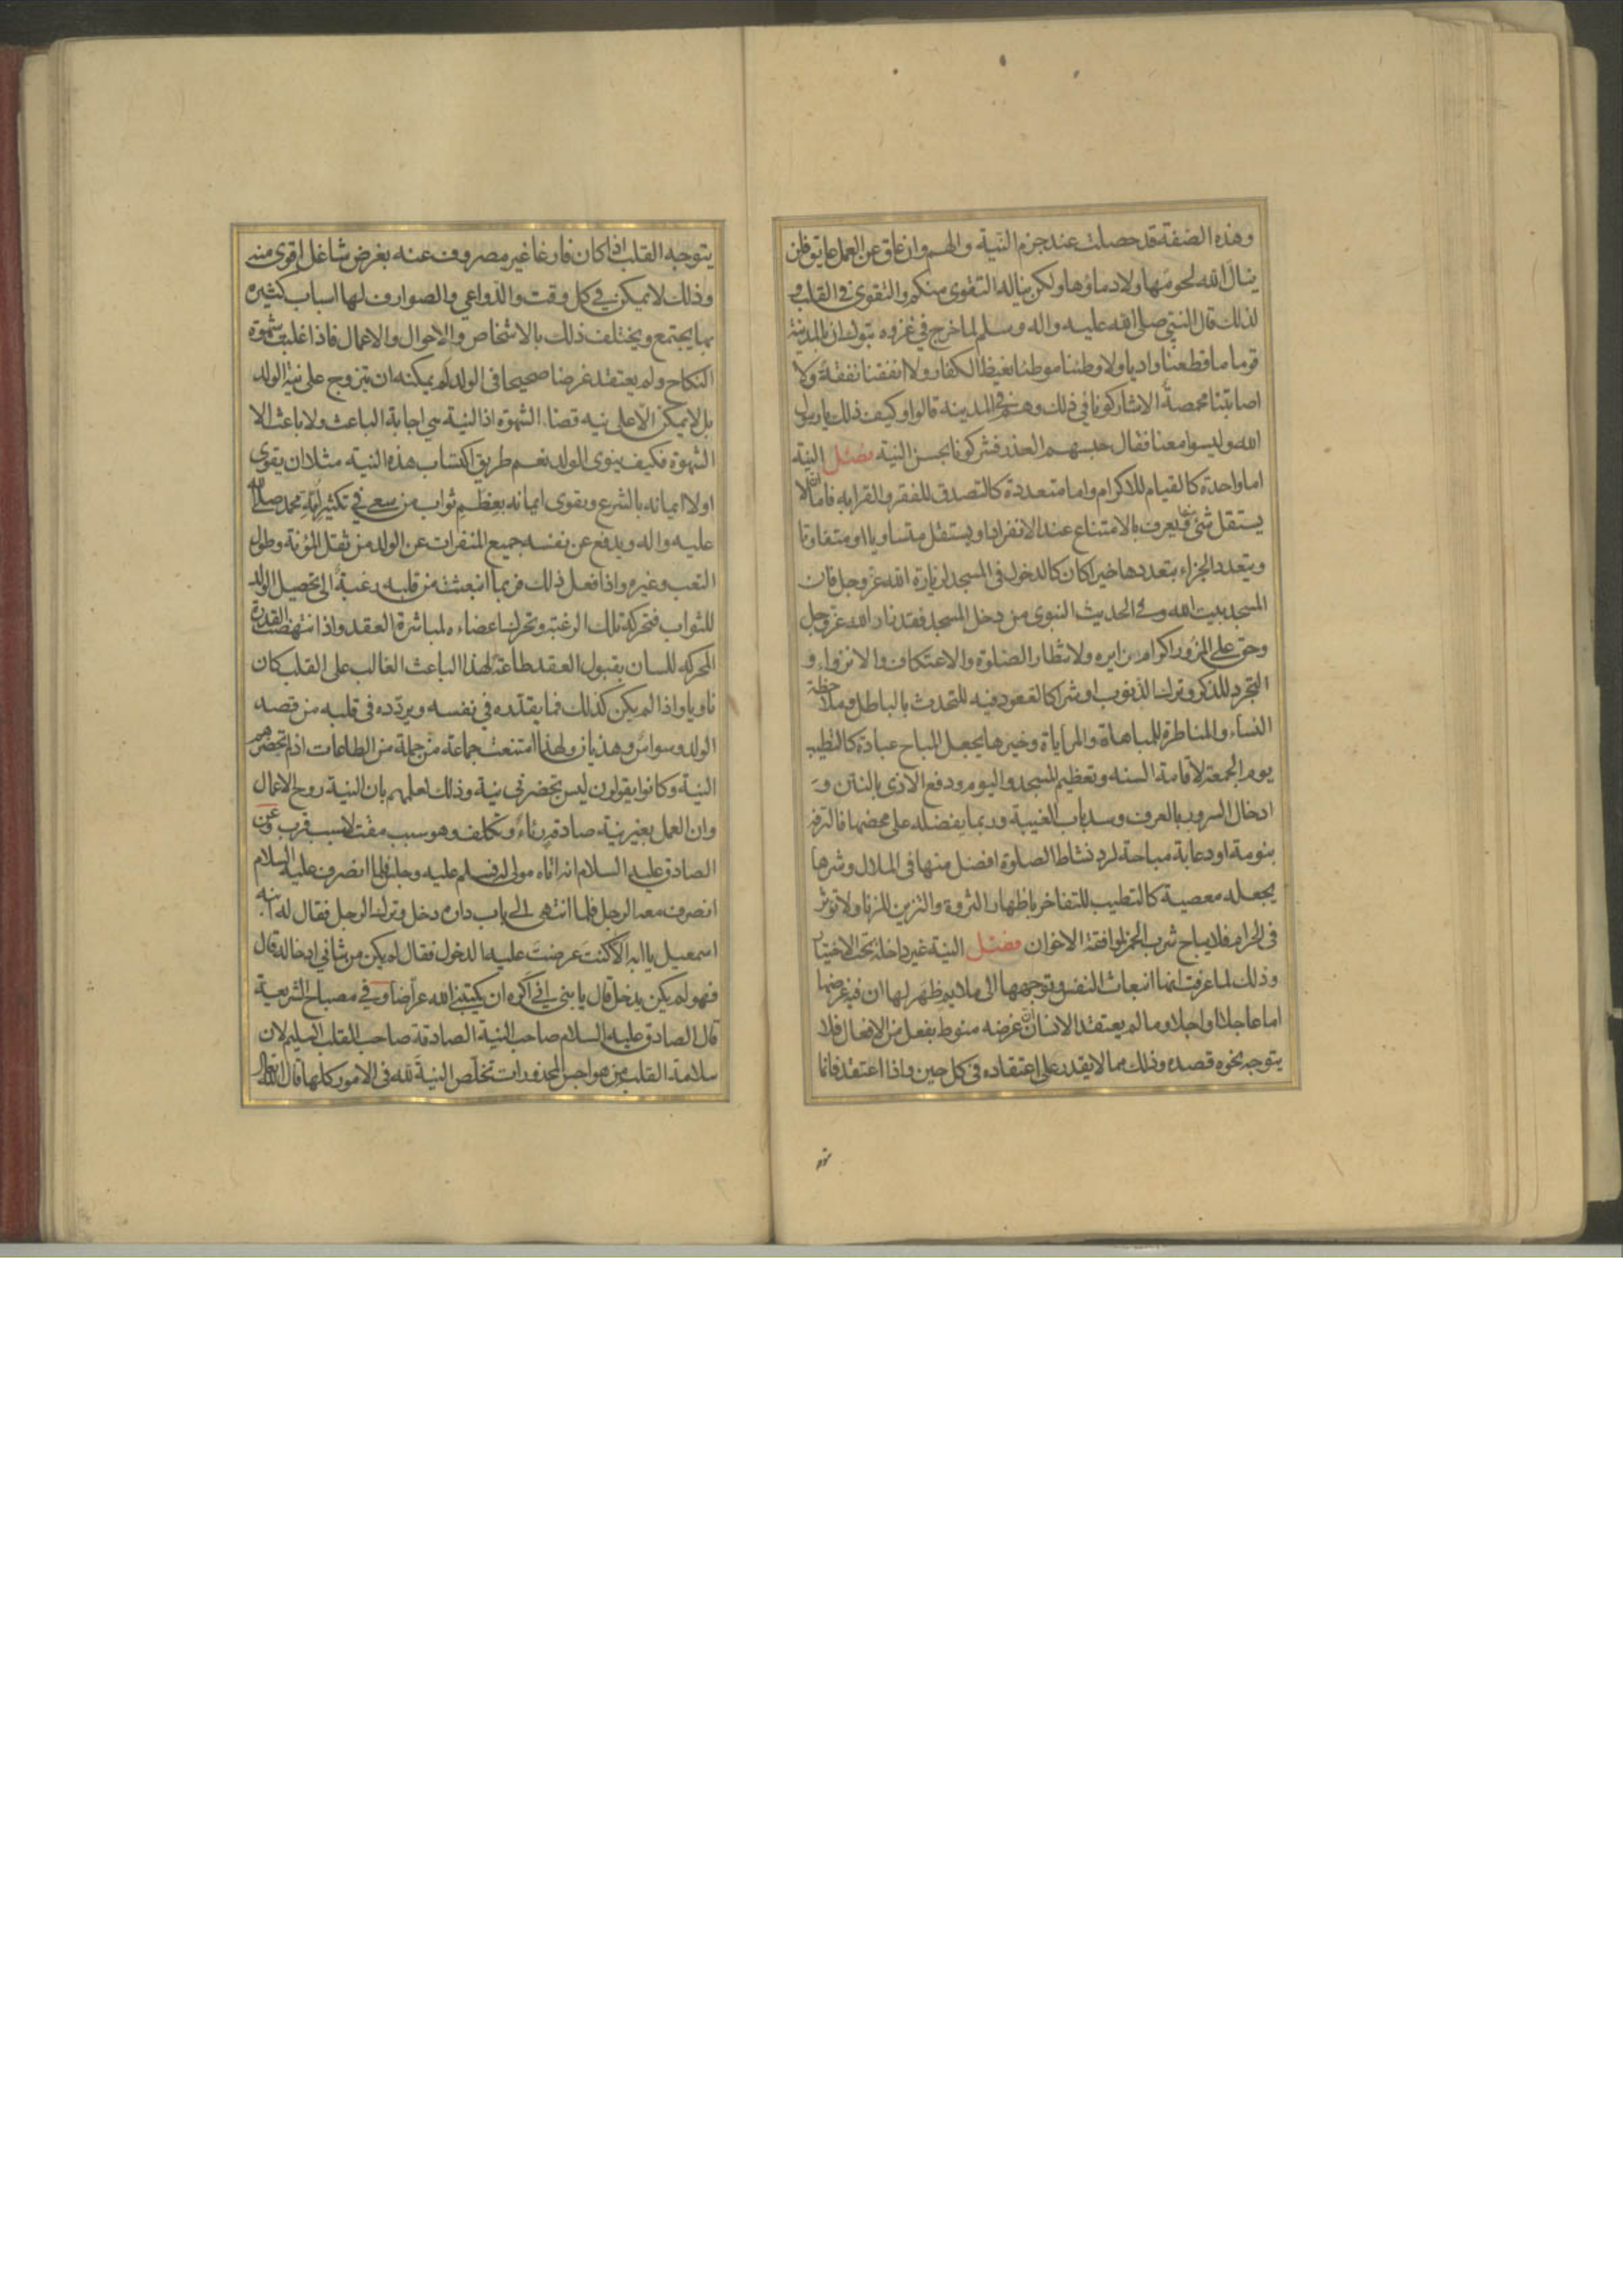 وهذه الصفة قد حصلت عند جزم النية والهم وان عاق عن العمل عايق فلن
ينال الله لحومها ولا دماؤها ولكن يناله التقوى منكم والتقوى فى القلب و
لذلك قال النبي صلى الله عليه واله وسلم لما خرج في غزوه تبوك ان بالمدينة
قوما ما قطعنا واديا ولا وطئنا موطئا يغيظ الكفار ولا انفقنا نفقة ولا
اصابتنا مخمصة الا شاركونا في ذلك وهم في المدينه قالوا وكيف ذلك يا رسول
الله وليسوا معنا فقال حبسهم العذر فشركونا بحسن النية فصل النية
اما واحدة كالقيام للاكرام واما متعددة كالتصدق للفقر والقرابه فاما ان لا
يستقل شئ منها فيعرف بالامتناع عند الانفراد او يستقل متساويا او متفاوتا
ويتعدد الجزاء بتعددها خيرا كان كالدخول في المسجد لزيارة الله عز وجل فان
المسجد بيت الله وفي الحديث النبوى من دخل المسجد فقد زار الله عز وجل
وحق على المزور اكرام زايره ولانتظار الصلوة والاعتكاف والانزواء و
التجرد للذكر وترك الذنوب او شرا كالقعود فيه للتحدث بالباطل وملاحظة
النساء والمناظرة للمباهاة والمراياة وخيرها يجعل المباح عبادة كالتطيب
يوم الجمعة لاقامة السنه وتعظيم المسجد واليوم ودفع الاذى بالنتن و
ادخال السرور بالعرف وسد باب الغيبة وربما يفضله على محضها فالترفه
بنومة او دعابة مباحة لرد نشاط الصلوة افضل منها فى الملال وشرها
يجعله معصية كالتطيب للتفاخر باظهار الثروة والتزين للزنا ولا تؤثر
فى الحرام فلا يباح شرب الخمر لموافقة الاخوان فصل النية غير داخلة تحت الاختيار
وذلك لما عرفت انها انبعاث النفس وتوجهها الى ما ظهر لها ان فيه غرضها
اما عاجلا او اجلا وما لم يعتقد الانسان ان غرضه منوط بفعل من الافعال فلا
يتوجه نحوه قصده وذلك مما لا يقدر على اعتقاده فى كل حين واذا اعتقد فانما
يتوجه القلب اذا كان فارغا غير مصروف عنه بغرض شاغل اقوى منه
وذلك لا يمكن في كل وقت والدواعي والصوارف لها اسباب كثيره
بها يجتمع ويختلف ذلك بالاشخاص والاحوال والاعمال فاذا غلبت شهوة
النكاح ولم يعتقد غرضا صحيحا فى الولد لم يمكنه ان يتزوج على نية الولد
بل لا يمكن الا على نيه قضاء الشهوة اذ النية هى اجابة الباعث ولا باعث الا
الشهوة فكيف ينوى الولد نعم طريق اكتساب هذه النية مثلا ان يقوى
اولا ايمانه بالشرع ويقوى ايمانه بعظم ثواب من سعى في تكثير امة محمد صلى الله
عليه واله ويدفع عن نفسه جميع المنفرات عن الولد من ثقل المؤنة وطول
التعب وغيره واذا فعل ذلك فربما انبعثت من قلبه رغبة الى تحصيل الولد
للثواب فتحركه تلك الرغبة وتحرك اعضاءه لمباشرة العقد واذا انتهضت القدرة
المحركه للسان بقبول العقد طاعة لهذا الباعث الغالب على القلب كان
ناويا واذا لم يكن كذلك فما يقدره في نفسه ويردده فى قلبه من قصد
الولد وسواس وهذيان ولهذا امتنعت جماعة من جملة من الطاعات اذ لم تحضرهم
النية وكانوا يقولون ليس تحضرني نية وذلك لعلمهم بان النية روح الاعمال
وان العمل بغير نية صادقة رئاء وتكلف وهو سبب مقت لا سبب قرب وعن
الصادق عليه السلام انه اتاه مولى له فسلم عليه وجلس فلما انصرف عليه السلام
انصرف معه الرجل فلما انتهى الى باب داره دخل وترك الرجل فقال له ابنه
اسمعيل يا ابه الا كنت عرضت عليه الدخول فقال لم يكن من شاني ادخاله قال
فهو لم يكن يدخل قال يا بني اني اكره ان يكتبني الله عراضا وفي مصباح الشريعة
قال الصادق عليه السلام صاحب النية الصادقة صاحب القلب السليم لان
سلامة القلب من هواجس المحذورات تخلص النية لله فى الامور كلها قال الله تعالى